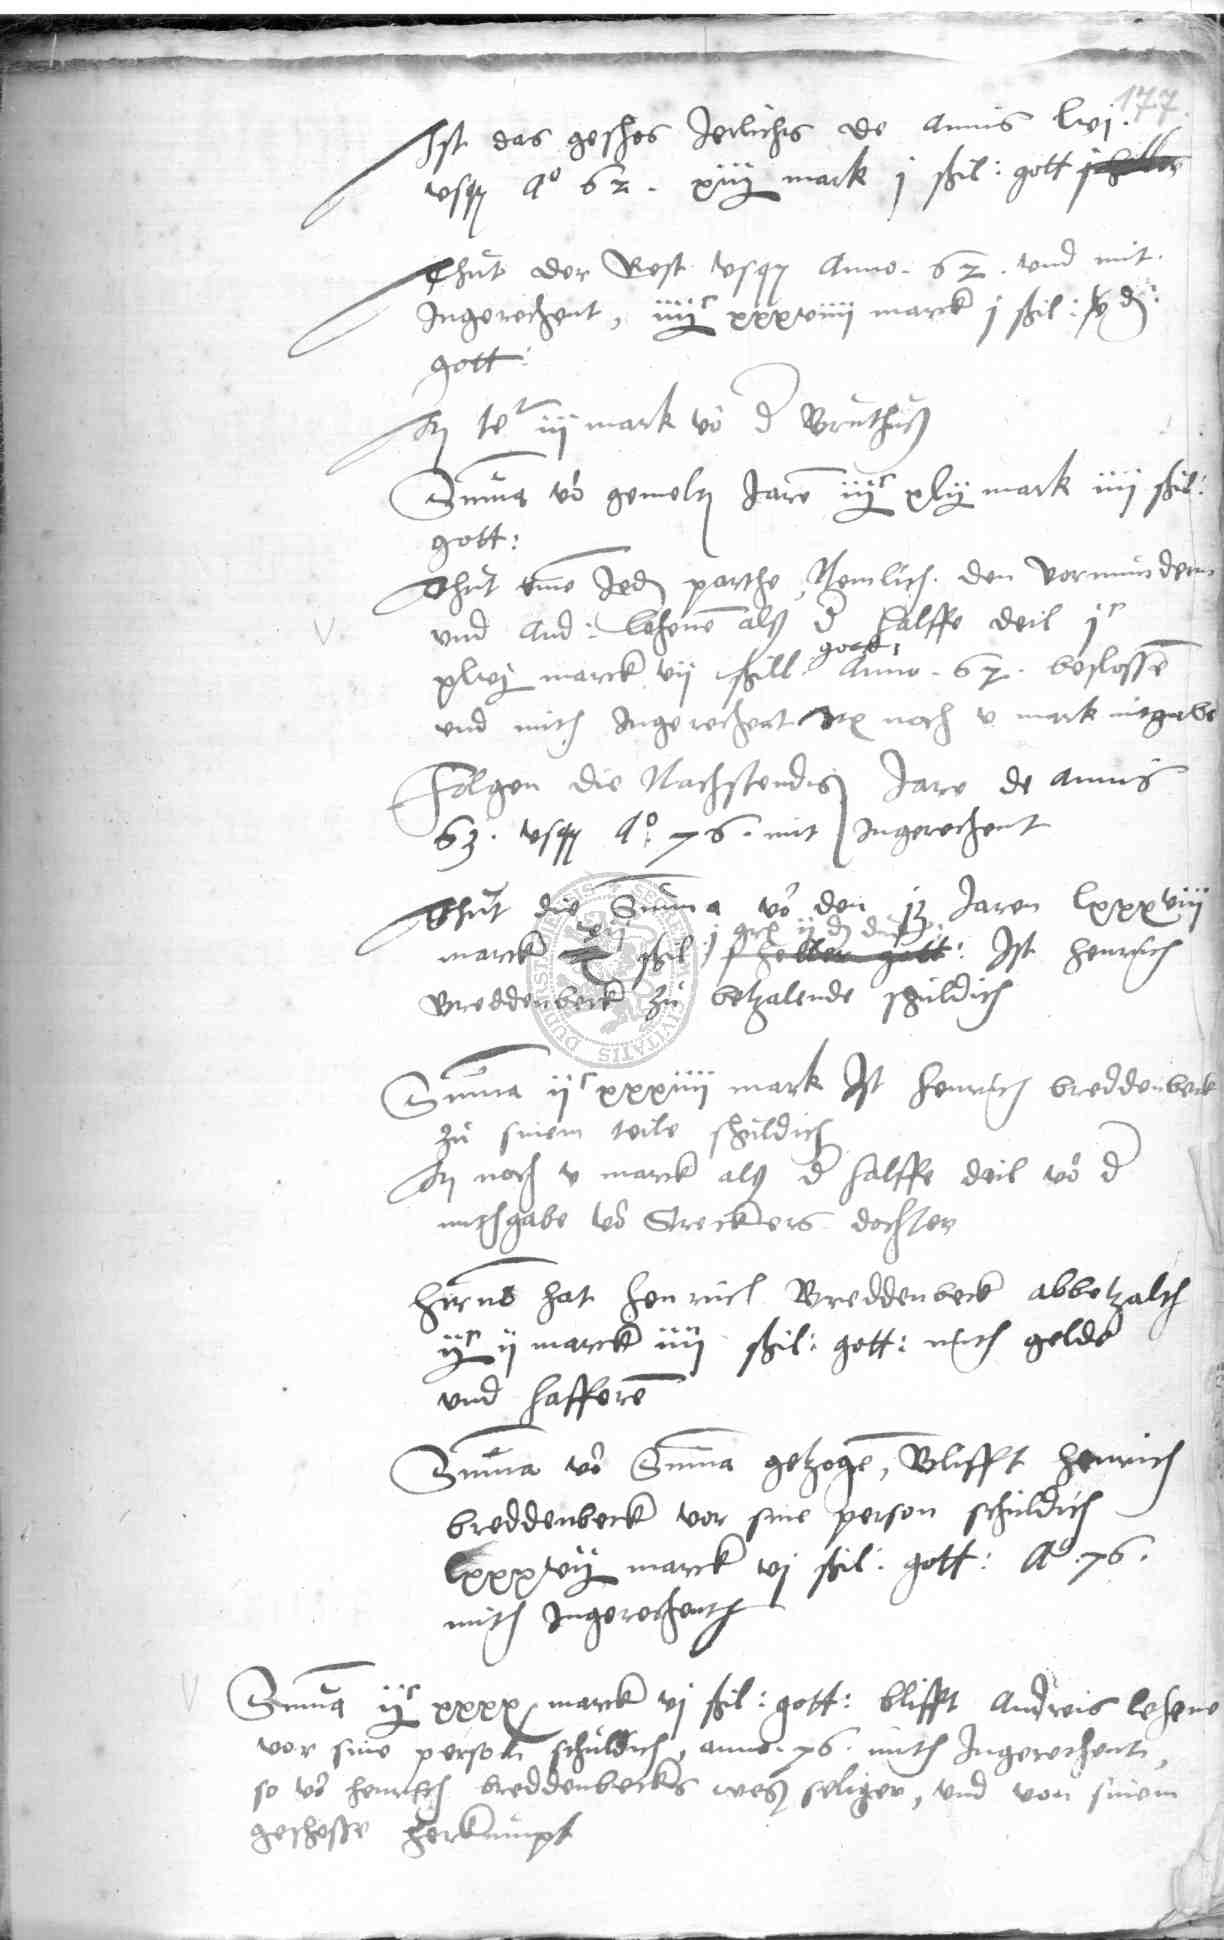 177
Ist das geschos Jerliches de annis lvj.
vsq Ao 62. xiij mark j schil: gott
Thut der Rest vsq Anno. 62. und mit
Ingerechent, iiijc xxxviiij marck j schil:
gott:
iij mark vo d Bruthuß
Summa vo gemelt Jare iijc xlij mark iiij schil:
gott:
Thut eine Jed parthe, Nemlich den Vormundern
und And: Lehene als d halffe deil jc
xlvj marck vij schill gott: Anno. 62. beslossen
und mith Ingerechent noch v mark mitgabe
Folgen die Nachstendig Jare de annis
63. vsq Ao. 76. mit Ingerechent
Thut die Summa vo den 13 Jaren lxxxviij
marck schil j heller gott: Ist Henrich
Breddenbeck zu betzalende schuldich
Summa ijc xxxiiij mark Ist Henrich breddenbeck
zu sinem teile schuldich
noch v marck als d halffe deil vo d
mithgabe vo Streckers dochter
Hirno hat Henrich Breddenbeck abbetzalth
ijc ij marck iiij schil: gott: mith gelde
und haffere
Summa vo Summa getzoge, Blifft Henrich
breddenbeck vor sine person schuldich
lxxxvij marck vj schil: gott: Ao. 76.
mith Ingerechenth
Summa ijc xxxx marck vj schil: gott: blifft Andreis Lehene
vor sine person schuldich, anno. 76. mith Ingerechent,
so vo Henrich breddenbecks weg seliger, und von sinem
geschosse herkumpt